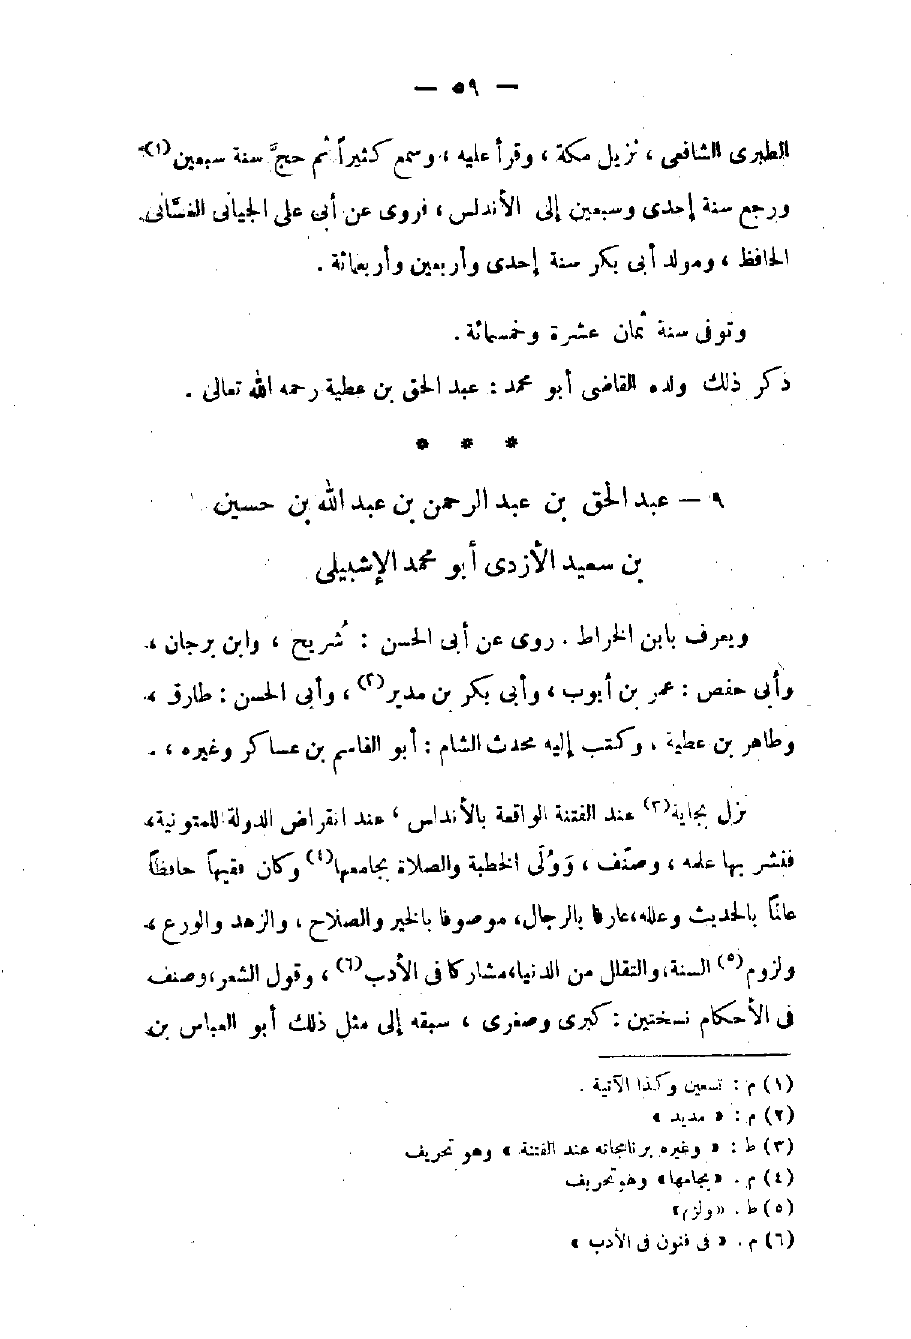 — ٥٩ —
الطبرى الشافعى ، نزيل مكة ، وقرأ عليه ، وسمع كثيراً ثم حجَّ سنة سبعين (١)
ورجع سنة إحدى وسبعين إلى الأندلس ، فروى عن أبى على الجيانى الغسَّانى
الحافظ ، ومولد أبى بكر سنة إحدى وأربعين وأربعمائة .
وتوفى سنة ثمان عشرة وخمسمائة .
ذكر ذلك ولده القاضى أبو محمد : عبد الحق بن عطية رحمه الله تعالى .
* * *
٩ — عبد الحق بن عبد الرحمن بن عبد الله بن حسين
بن سعيد الأزدى أبو محمد الإشبيلى
ويعرف بابن الخراط . روى عن أبى الحسن : شُريح ، وابن برجان ،
وأبى حفص : عمر بن أيوب ، وأبى بكر بن مدير (٢) ، وأبى الحسن : طارق ،
وطاهر بن عطية ، وكتب إليه محدث الشام : أبو القاسم بن عساكر وغيره ، .
نزل بجاية (٣) عند الفتنة الواقعة بالأندلس ، عند انقراض الدولة للمتونية ،
فنشر بها علمه ، وصنّف ، وَوُلَى الخطبة والصلاة بجامعها (٤) وكان فقيهاً حافظاً
عالماً بالحديث وعلله ، عارفا بالرجال ، موصوفا بالخير والصلاح ، والزهد والورع ،
ولزوم (٥) السنة ، والتقلل من الدنيا ، مشاركا فى الأدب (٦) ، وقول الشعر ، وصنف
فى الأحكام نسختين : كبرى وصغرى ، سبقه إلى مثل ذلك أبو العباس بن
(١) م : تسعين وكذا الآتية .
(٢) م : « مديد »
(٣) ط : « وغيره برنامجانه عند الفتنة » وهو تحريف
(٤) م . «بجامها» وهو تحريف
(٥) ط . «ولزم»
(٦) م . « فى فنون فى الأدب »